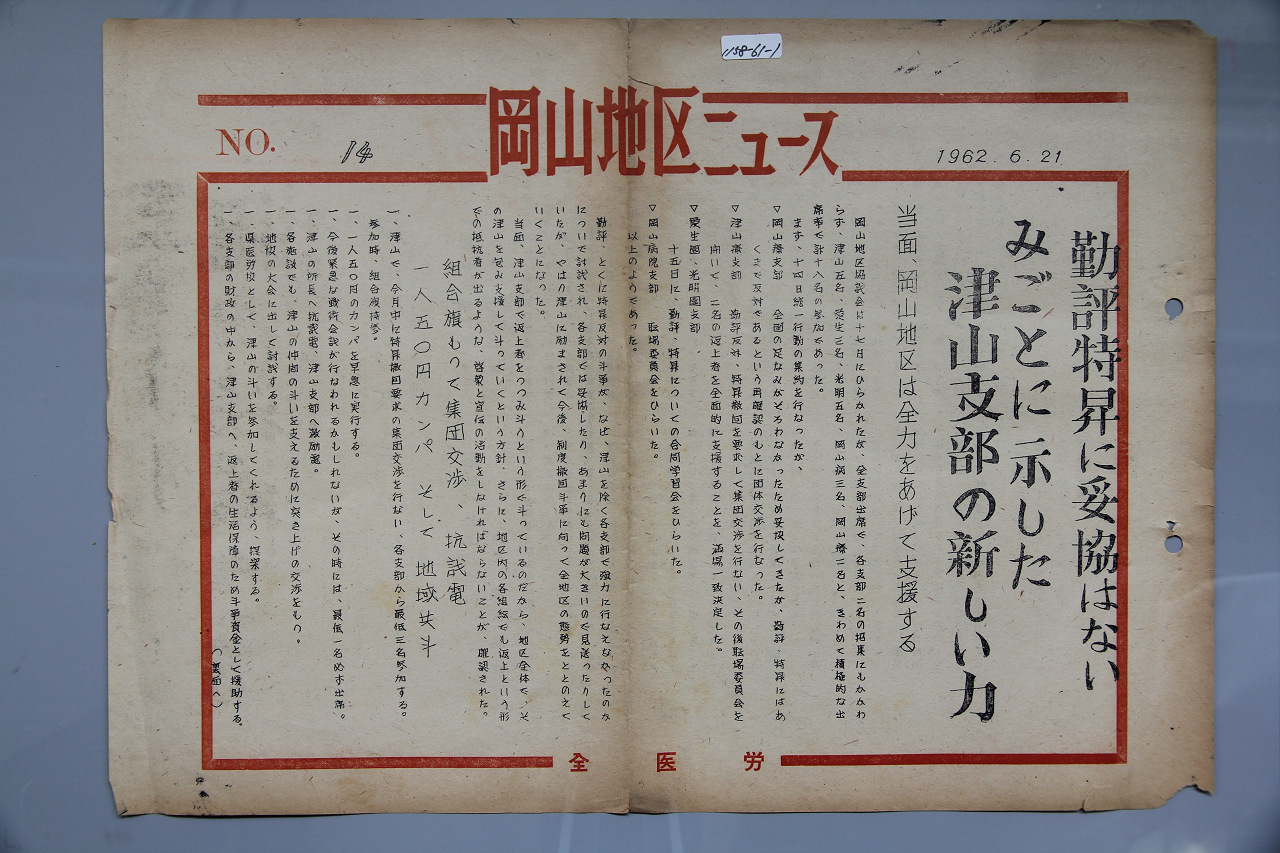 1158-61-1
岡山地区ニュース
NO. 14
1962.6.21
勤評特昇に妥協はない
みごとに示した
津山支部の新しい力
当面、岡山地区は全力をあげて支援する
岡山地区協議会は十七日にひらかれたが、全支部出席で、各支部二名の招集にもかかわ
らず、津山五名、愛生三名、光明五名、岡山病三名、岡山療二名と、きわめて積極的な出
席率で計十八名の参加であった。
まず、十四日統一行動の集約を行なったが、
▽岡山療支部 全国の足なみがそろわなかったため妥協してきたが、勤評、特昇にはあ
くまで反対であるという再確認のもとに団体交渉を行なった。
▽津山療支部 勤評反対、特昇撤回を要求して集団交渉を行ない、その後職場委員会を
開いて、二名の返上者を全面的に支援することを、満場一致決定した。
▽愛生園、光明園支部
十五日に、勤評、特昇についての合同学習会をひらいた。
▽岡山病院支部 職場委員会をひらいた。
以上のようであった。
勤評、とくに特昇反対の斗争が、なぜ、津山を除く各支部で強力に行なえなかったのか
について討議され、各支部では妥協したり、あまりにも問題が大きいので見送ったりして
いたが、やはり津山に励まされて今後、制度撤回斗争に向って全地区の態勢をととのえて
いくことになった。
当面、津山支部で返上者をつつみ斗うという形で斗っているのだから、地区全体で、そ
の津山を包み支援して斗っていくという方針、さらに、地区内の各組織でも返上という形
での抵抗者が出るような、啓蒙と宣伝の活動をしなければならないことが、確認された。
組合旗もって集団交渉、抗議電
一人五〇円カンパ そして 地域共斗
一、津山で、今月中に特昇撤回要求の集団交渉を行ない、各支部から最低三名参加する。
参加時、組合旗持参。
一、一人五〇円のカンパを早急に実行する。
一、今後緊急な戦術会議が行なわれるかもしれないが、その時には、最低一名必ず出席。
一、津山の所長へ抗議電、津山支部へ激励電。
一、各施設でも、津山の仲間の斗いを支えるために突き上げの交渉をもつ。
一、地域の大会に出して討議する。
一、県医労校として、津山の斗いを参加してくれるよう、提案する。
一、各支部の財政の中から、津山支部へ、返上者の生活保障のため斗争資金として援助する。
（裏面へ）
全医労